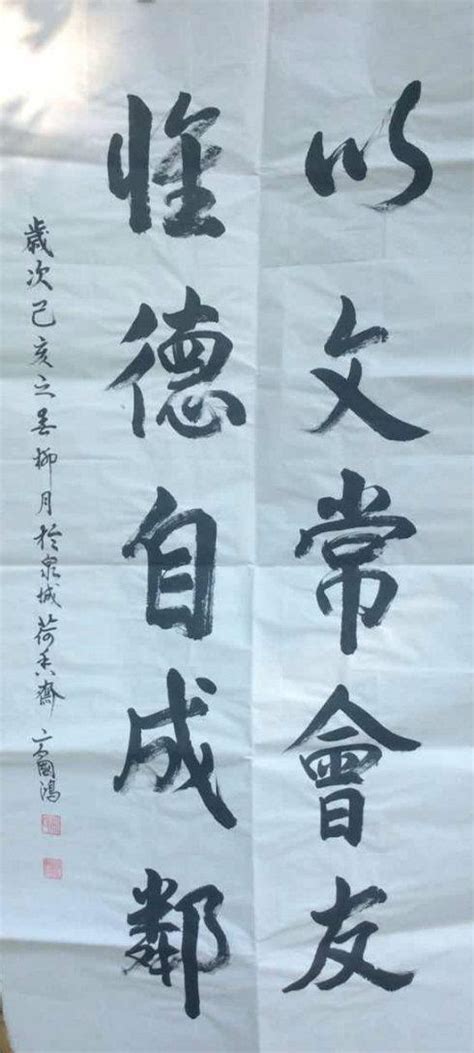 以文常會友
惟德自成鄰
歲次己亥之春柳月於泉城荷香齋 國鴻